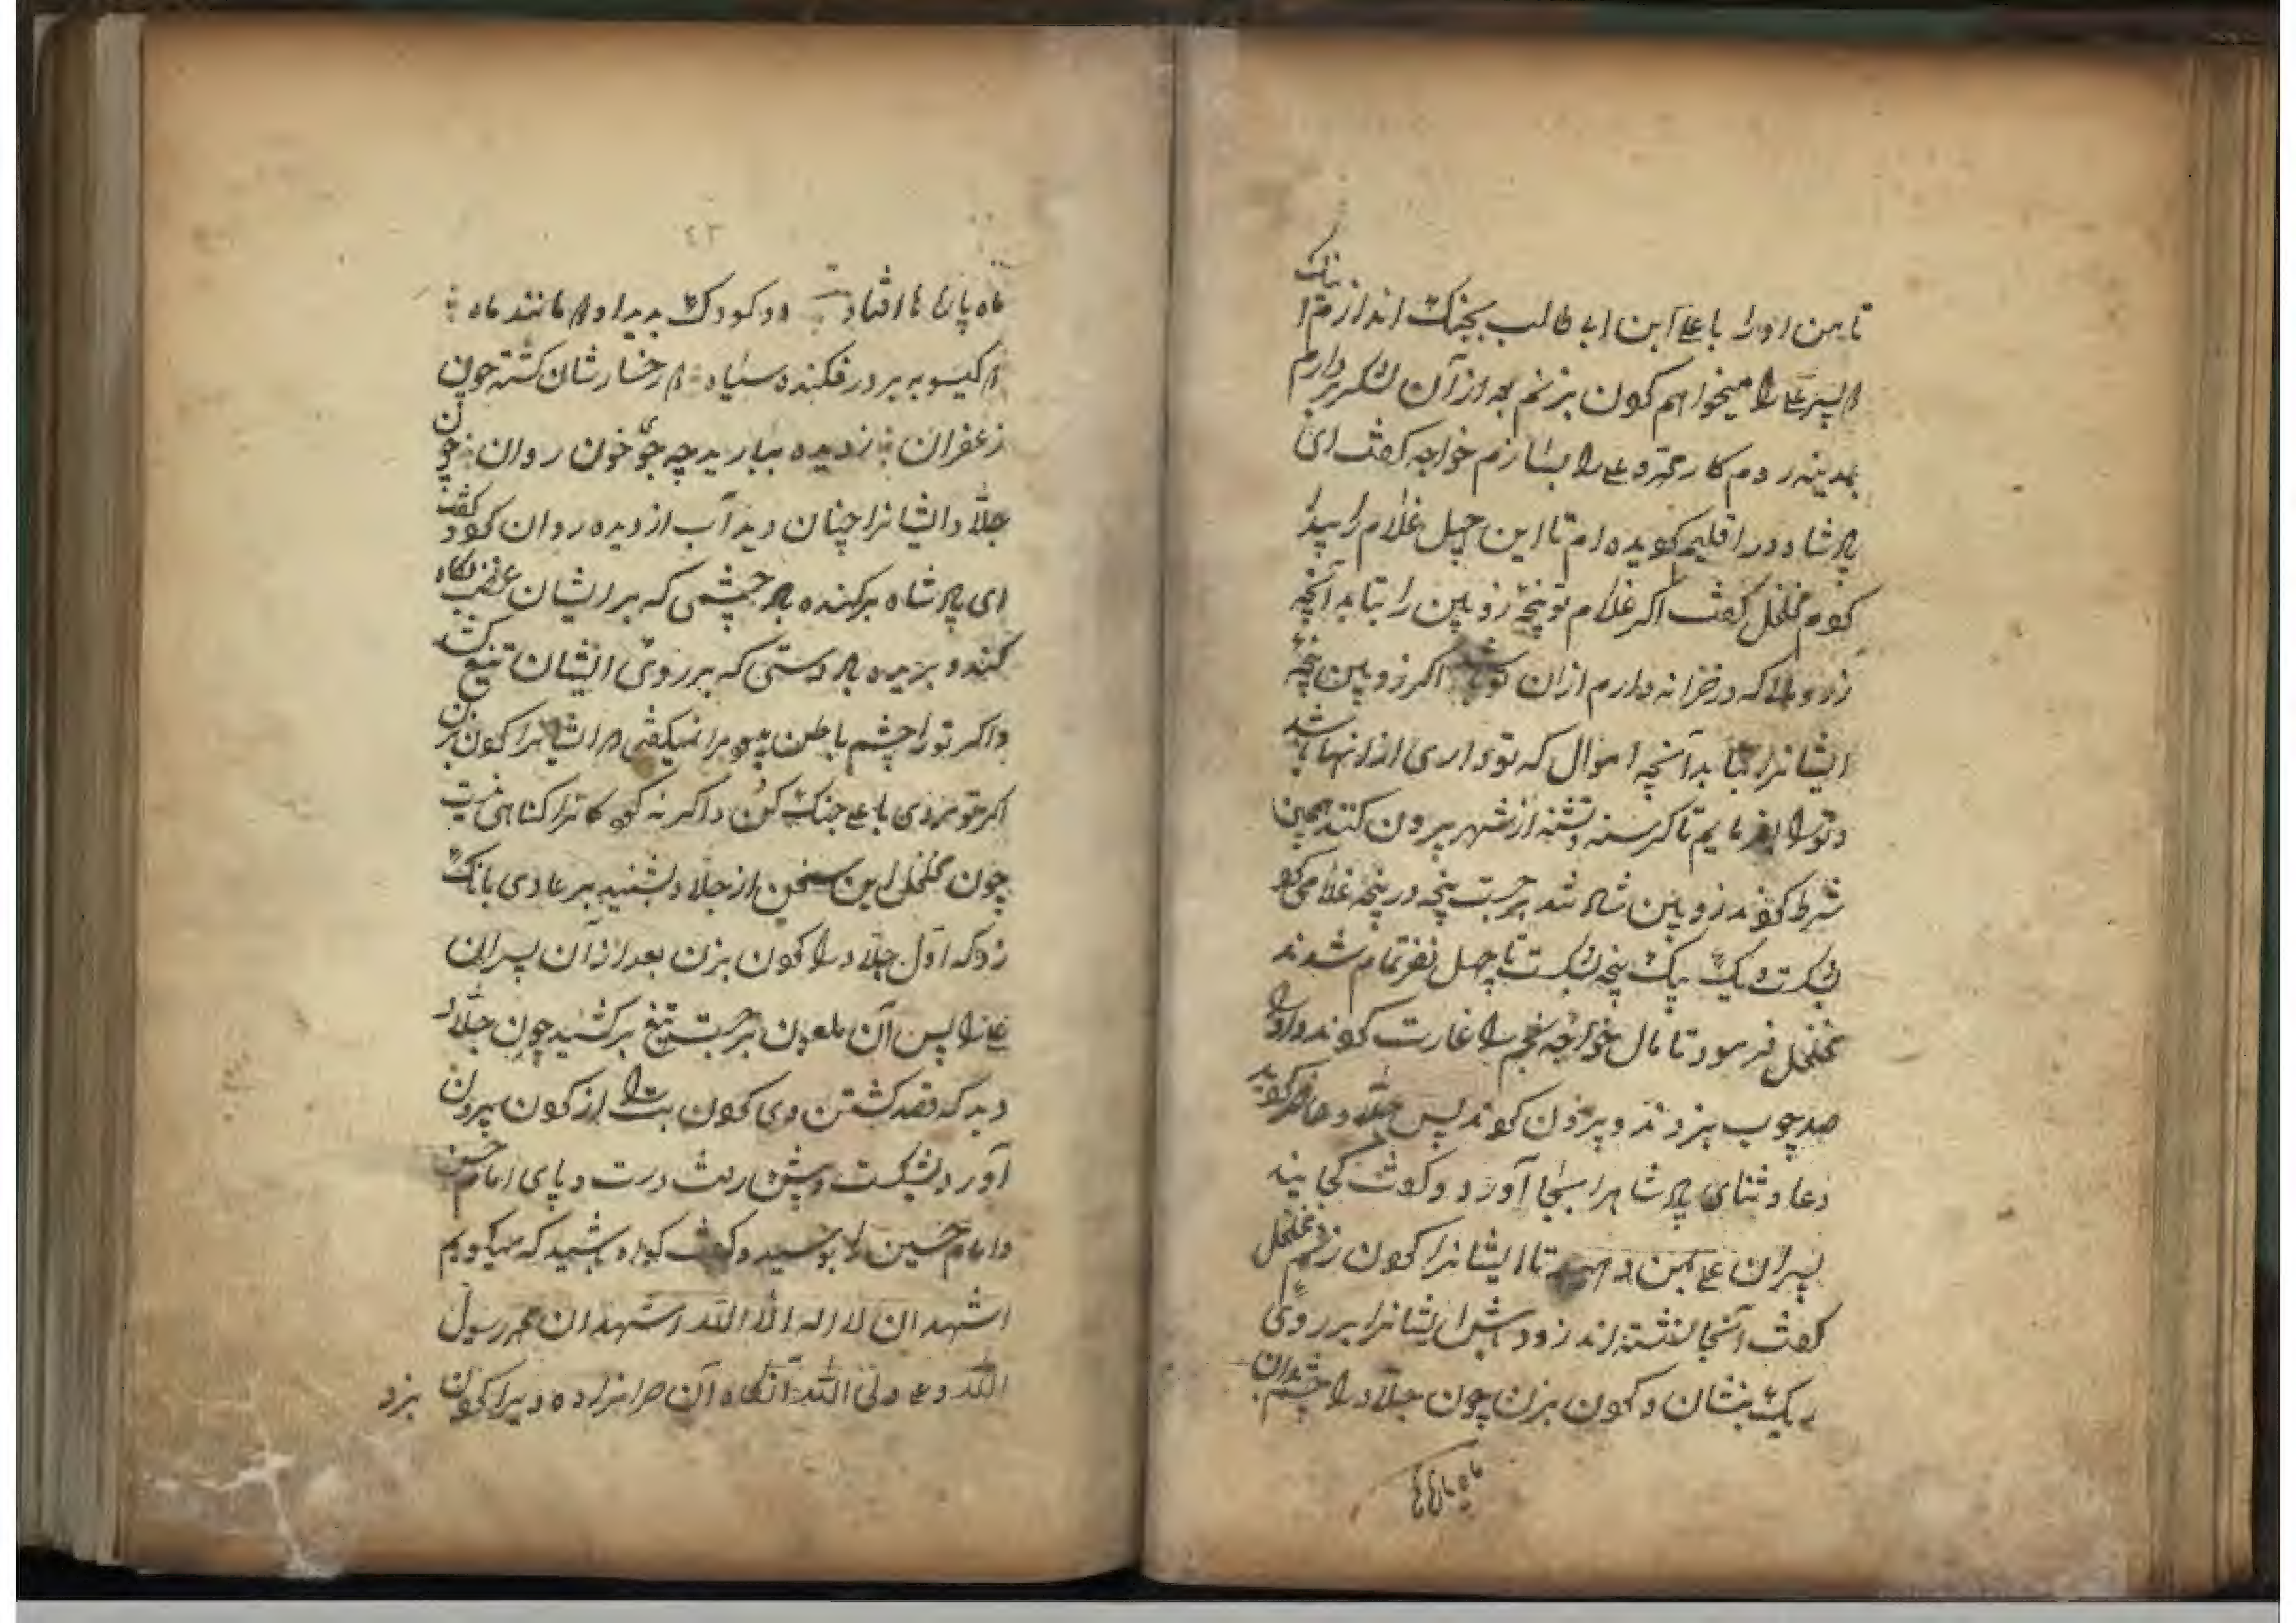 تا من اورا با علے ابن ابی طالب بجنک اندازم تا اینک
پسر علے را میخواهم کردن بزنم بعد از آن لشکر بردارم
بمدینه روم کار محمد و علے را بسازم خواجه کفت ای
پادشاه در اقلیم کردیده ام تا این چهل غلام را پیدا
کردم خلخل کفت اکر غلام تو پنجۀ زوبین را بتابد آنچه
زر و که در خزانه دارم ازان تو باشد اکر زوبین پنجۀ
ایشانرا بتابد آنچه اموال که تو داری ازانها باشد
وتورا بفرمایم تا کرسنه وتشنه از شهر بیرون کنند همین
شرط کردند زوبین شاد شد برجست پنجه در پنجه غلامی کرد
شکست ویک یک پنجه شکست تا چهل نفر تمام شدند
خلخل فرمود تا مال خواجه را غارت کردند واورا
صد چوب بزدند وبیرون کردند پس جلاد حاضر کردید
دعا وثنای پادشاهرا بجا آورد وکفت کجایند
پسران علے بمن دهید تا ایشانرا کردن زنم خلخل
کفت آنجا نشسته اند زود باش ایشانرا بر روی
ریک بنشان وکردن بزن چون جلاد را چشم بدان
ماه پارها
٤٣
ماه پارها افتاد دو کودک بدید او مانند ماه
کیسو به بر در فکنده سیاه رخسارشان کشته چون
زعفران ز دیده ببارید چه جوی خون روان چون
جلاد ایشانرا چنان دید آب از دیده روان کرد کفت
ای پادشاه برکنده باد چشمی که بر ایشان غضب نکاه
کند وبریده باد دستی که بر روی ایشان تیغ کشد
واکر تورا چشم باطن مرا نمیکفتی که ایشانرا کردن بزن
اکر تو مردی با علے جنک کن واکرنه کودکانرا کناهی نیست
چون خلخل این سخن از جلاد بشنید بر عادی بانک
زد که اول جلاد را کردن بزن بعد از آن پسران
علے را پس آن ملعون برجست تیغ برکشید چون جلاد
دید که قصد کشتن وی کرد بت را از کردن بیرون
آورد بشکست وپیش رفت دست وپای امام حسن
وامام حسین را بوسید وکفت کواه باشید که میکویم
اشهد ان لا اله الا الله واشهد ان محمد رسول
الله وعلے ولی الله آنکاه آن حرامزاده ویرا کردن بزد